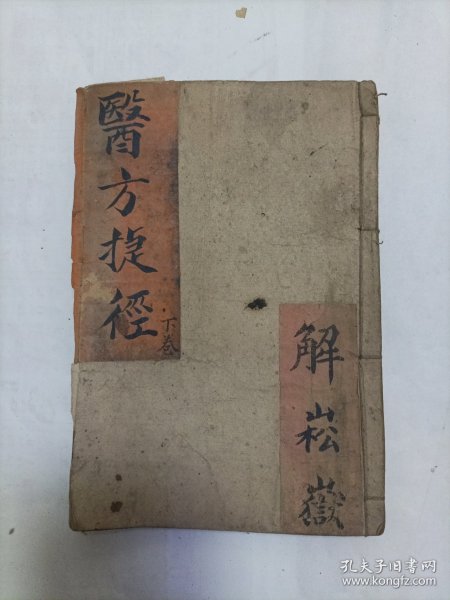 醫方捷徑
下卷
解崧嶽
孔夫子旧书网
www.kongfz.com